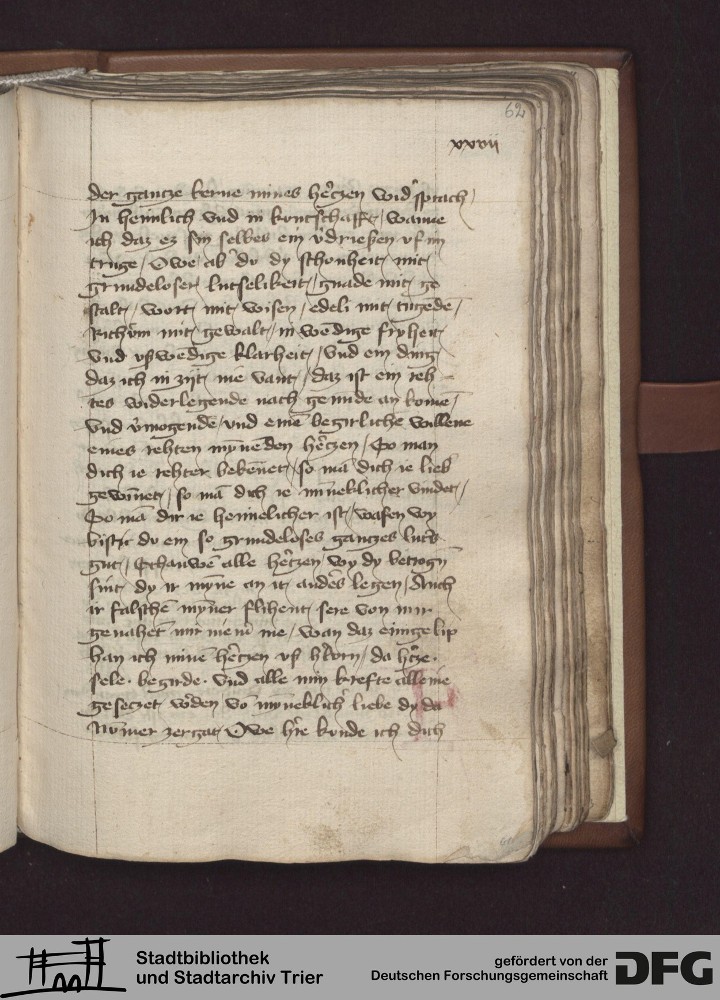 62
xxvii
der gancze kerne mines hꝯczen wid͛sprach /
In heimlich vnd in kuntschafft / wanne
ich daz ez sin selbes ein v̾drieſsen vf im
truge / Owe ab͛ du dy schonheit / mit
grundeloser lutselikeit / gnade mit ge
stalt / wort mit wisen / edeli mit tugēde /
Richtūm mit gewalt / inwēdige fryheit
vnd vſswēdige klarheit / Vnd ein ding
daz ich in zijt nie vant / daz ist ein reh -
tes widerlegende nach genude an komē /
Vnd v̾mogende / vnd einē begirliche willene
eines rehten mȳnēden hꝯczen / So man
dich ie rehter bekēnet / so mā dich ie lieb͛
gewīnet / so mā dich ie mīneklicher vindet /
So mā dir ie heimelicher ist / wafen wy
bistu du ein so grundeloses ganczes luters
gut / Schauwē alle hꝯczen / wy dy betrogn̄
sint / dy ir mȳne an it anders legen / Ach
ir falschē mȳner fliehent sere von mir
genahēt mir niem̄ me / wan daz einige lip
han ich minē hꝯczen vſs hkorn / da hꝯze ·
sele · begirde · vnd alle min krefte alleine
geseczet w͛den vō mȳneklich͛ liebe dy da
Nūmer zergat / Owe hꝯre kunde ich dich
Stadtbibliothek
und Stadtarchiv Trier
gefördert von der
Deutschen Forschungsgemeinschaft
DFG